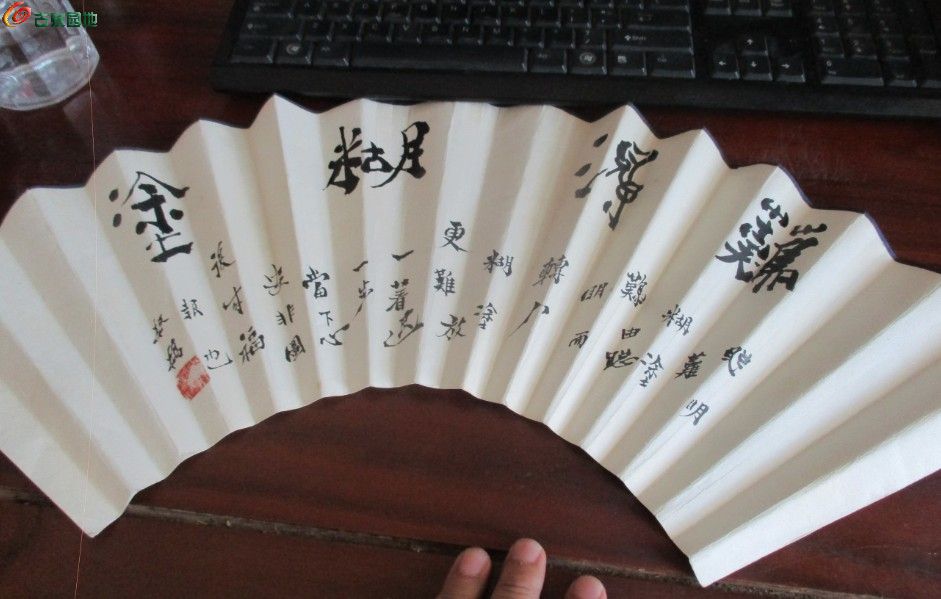 古泉园地
難得糊塗
聰明
難
糊塗
難由聰
明而
轉入
糊塗
更難放
一着退
一步
當下心
安非圖
後來福
報也